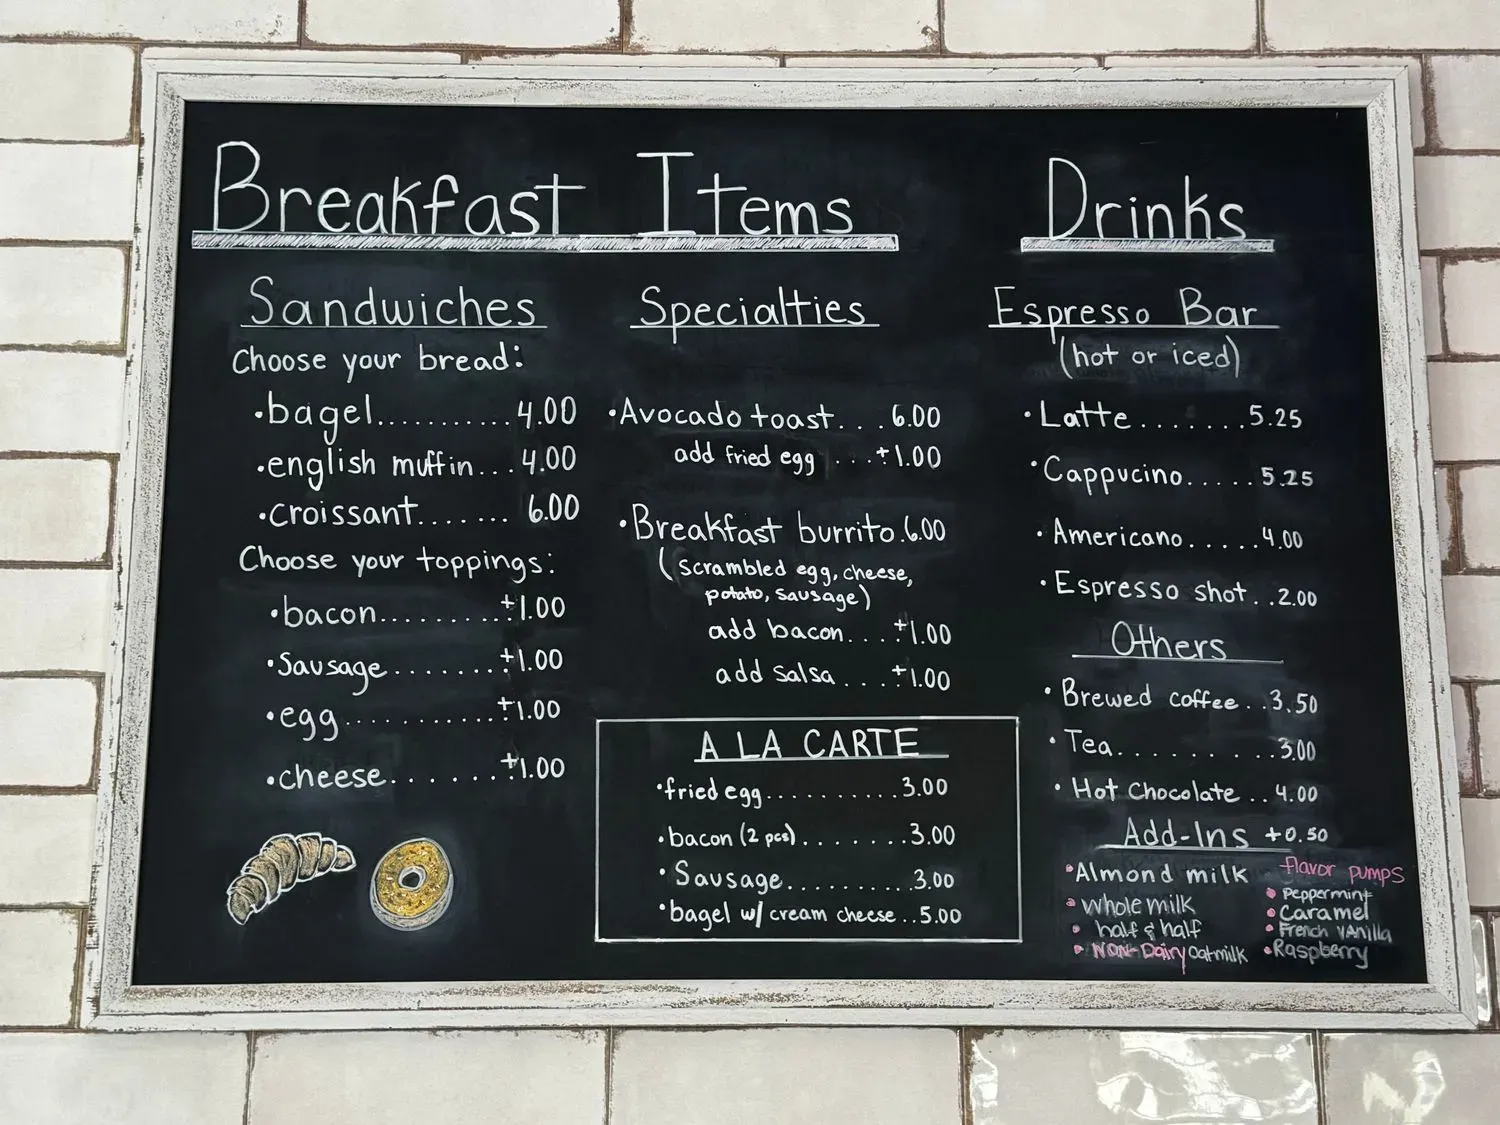 Breakfast Items
Sandwiches
Choose your bread:
•bagel...........4.00
•english muffin...4.00
•croissant....... 6.00
Choose your toppings:
•bacon.........+1.00
•Sausage.......+1.00
•egg............+1.00
•cheese.......+1.00
Specialties
•Avocado toast...6.00
add fried egg ...+1.00
•Breakfast burrito.6.00
(scrambled egg, cheese,
potato, sausage)
add bacon...+1.00
add salsa...+1.00
A LA CARTE
•fried egg..........3.00
•bacon (2 pcs).......3.00
•Sausage.........3.00
•bagel w/ cream cheese..5.00
Drinks
Espresso Bar
(hot or iced)
•Latte.......5.25
•Cappucino.....5.25
•Americano.....4.00
•Espresso shot..2.00
Others
•Brewed coffee..3.50
•Tea.........3.00
•Hot Chocolate..4.00
Add-Ins +0.50
•Almond milk
•whole milk
•half & half
•Non-Dairy oatmilk
flavor pumps
•Peppermint
•Caramel
•French Vanilla
•Raspberry